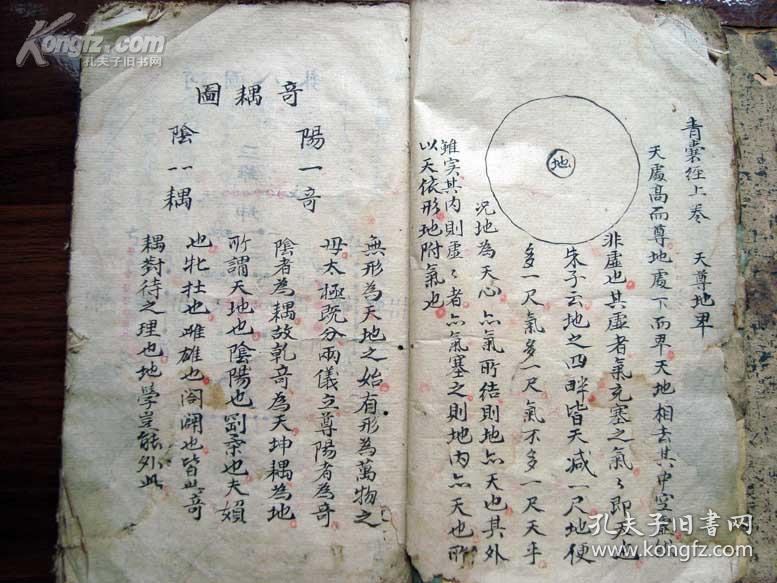 青囊經上卷 天尊地卑
天處高而尊地處下而卑天地相去其中空
地
非虛也其虛者氣充塞之氣〻即天也
朱子云地之四畔皆天減一尺地便
多一尺氣多一尺氣不多一尺天乎
況地為天心亦氣所結則地亦天也其外
雖实其内則虛〻者亦氣塞之則地内亦天也所
以天依形地附氣也
奇耦圖
陽一奇
陰--耦
無形為天地之始有形為萬物之
毋太極既分兩儀立尊陽者為奇
陰者為耦故乾奇為天坤耦為地
所謂天地也陰陽也剛柔也夫婦
也牝牡也雌雄也闔闢也皆此奇
耦對待之理也地學豈能外此
Kongfz.com
孔夫子旧书网
孔夫子旧书网
www.kongfz.com